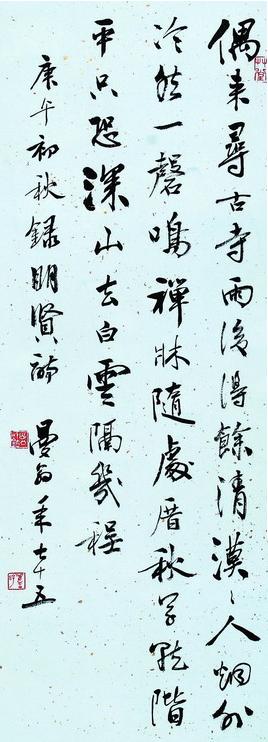 偶来尋古寺雨後得餘清漠〻人烟外
泠然一磬鳴禪牀隨處厝秋草乱階
平只恐深山去白雲隔幾程
庚午初秋録明賢詩
曼翁年七十五